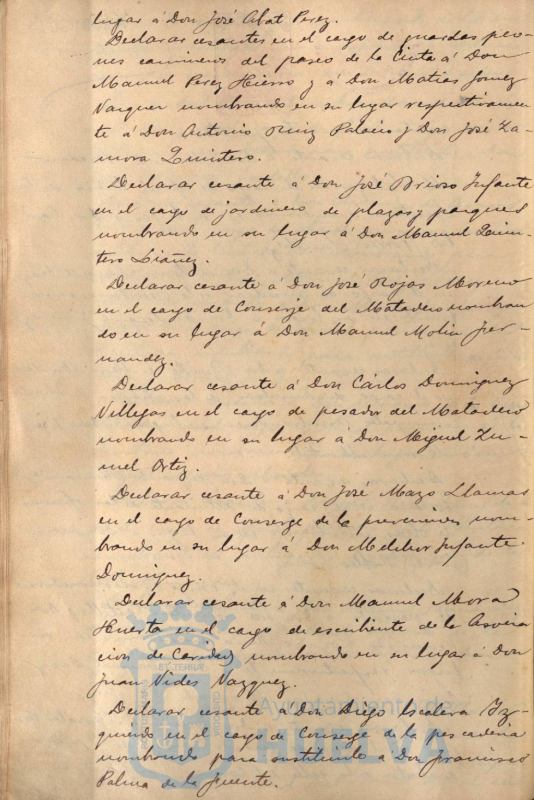 lugar á Don José Abat Perez.
Declarar cesantes en el cargo de guardas peo-
nes camineros del paseo de la Cinta á Don
Manuel Perez Hierro y á Don Matias Gomez
Vazquez nombrando en su lugar respectivamen
te á Don Antonio Ruiz Palacio y Don José Za-
mora Quintero.
Declarar cesante á Don José Brioso Infante
en el cargo de jardinero de plazas y parques
nombrando en su lugar á Don Manuel Quin-
tero Liañez.
Declarar cesante á Don José Rojas Moreno
en el cargo de Conserje del Matadero nombran
do en su lugar á Don Manuel Molin Fer-
nandez.
Declarar cesante á Don Cárlos Dominguez
Villegas en el cargo de pesador del Matadero
nombrando en su lugar á Don Miguel Zu-
mel Ortiz.
Declarar cesante á Don José Mazo Llamas
en el cargo de Conserge de la prevencion nom-
brando en su lugar á Don Melchor Infante
Dominguez.
Declarar cesante á Don Manuel Mora
Huerta en el cargo de escribiente de la Asocia
cion de Caridad nombrando en su lugar á Don
Juan Vides Vazquez.
Declarar cesante á Don Diego Escalera Yz-
quierdo en el cargo de Conserge de la pescaderia
nombrando para sustituirlo á Don Francisco
Palma de la Fuente.
Ayuntamiento de
HUELVA